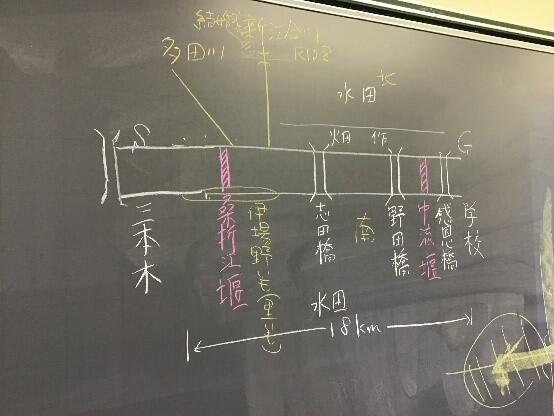 新江合川
多田川
水田
北
畑作
S
G
三本木
桑折江堰
伊場野いも(里も)
志田橋
南
野田橋
中流堰
感恩橋
学校
水田
18km